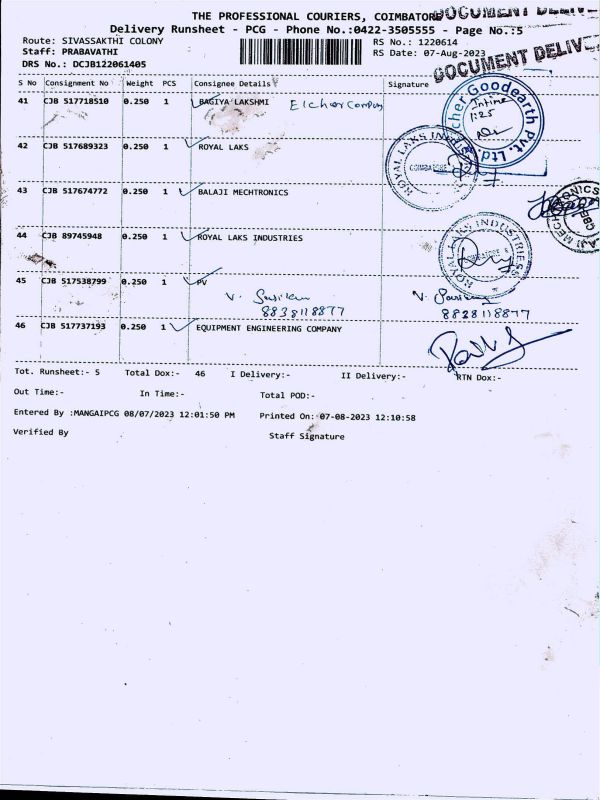 THE PROFESSIONAL COURIERS, COIMBATORE
DOCUMENT DELIVE
Delivery Runsheet - PCG - Phone No.:0422-3505555 - Page No.:5
Route: SIVASSAKTHI COLONY
RS No.: 1220614
Staff: PRABAVATHI
RS Date: 07-Aug-2023
DOCUMENT DELIVE
DRS No.: DCJB122061405
S No Consignment No Weight PCS Consignee Details Signature
41 CJB 517718510 0.250 1 BAGIYA LAKSHMI Eicher Company
cher Goodearth Pvt. Ltd.
Intime
1:25
42 CJB 517689323 0.250 1 ROYAL LAKS
ROYAL LAKS INDUSTRIES
COIMBATORE
43 CJB 517674772 0.250 1 BALAJI MECHTRONICS
44 CJB 89745948 0.250 1 ROYAL LAKS INDUSTRIES
ROYAL LAKS INDUSTRIES
45 CJB 517538799 0.250 1 PV
8838118877
8828118877
46 CJB 517737193 0.250 1 EQUIPMENT ENGINEERING COMPANY
Tot. Runsheet:- 5 Total Dox:- 46 I Delivery:- II Delivery:- RTN Dox:-
Out Time:- In Time:- Total POD:-
Entered By :MANGAIPCG 08/07/2023 12:01:50 PM Printed On: 07-08-2023 12:10:58
Verified By Staff Signature